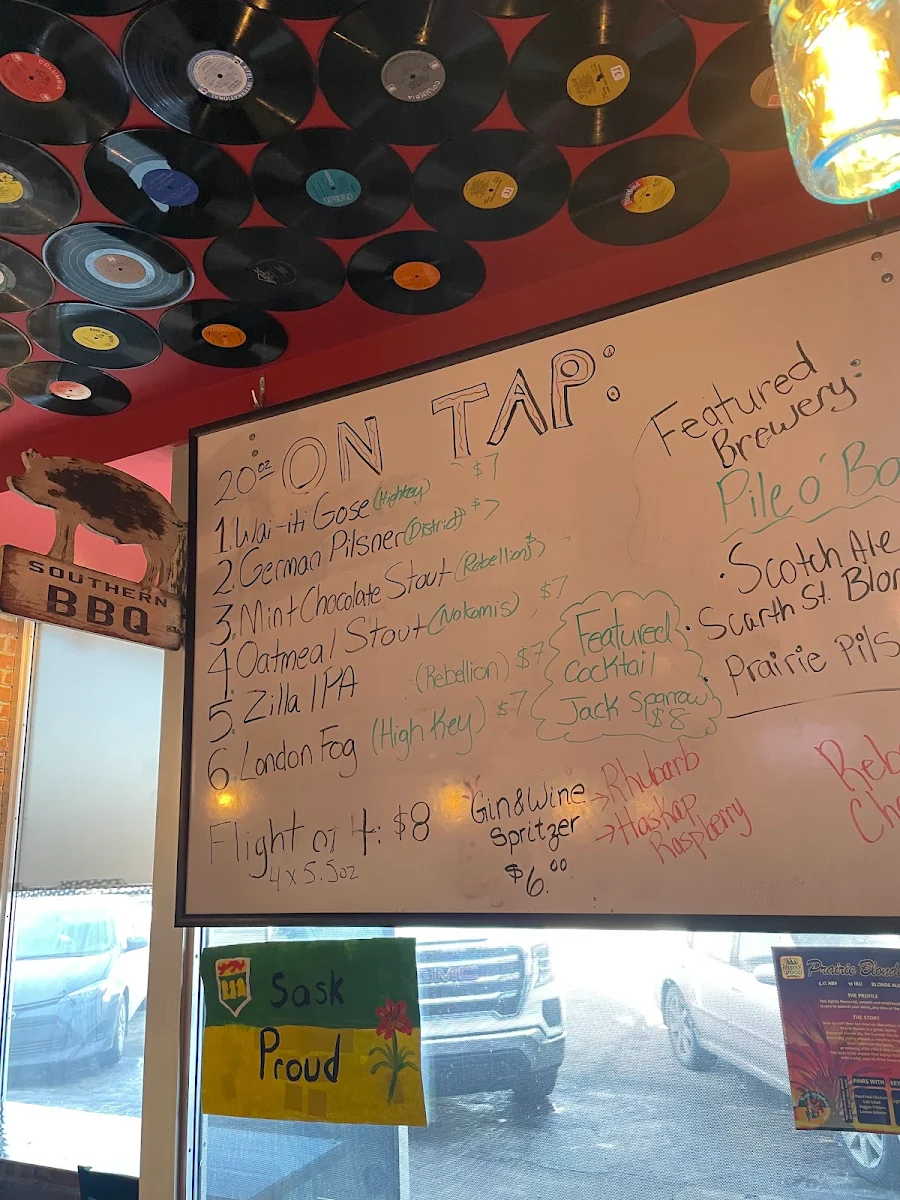 COLUMBIA
COLUMBIA
ON TAP:
20oz
$7
1. Wai-iti Gose (Highkey)
2. German Pilsner (District) $7
3. Mint Chocolate Stout (Rebellion) $
4. Oatmeal Stout (Nokomis) $7
5. Zilla IPA (Rebellion) $7
6. London Fog (High Key) $7
Flight of 4: $8
4 x 5.5oz
Featured
Cocktail
Jack Sparrow
$8
Gin & Wine
Spritzer
$6.00
→ Rhubarb
→ Haskap
Raspberry
Featured
Brewery:
Pile o' Bo
· Scotch Ale
· Scarth St. Blon
· Prairie Pils
Reb
Ch
SOUTHERN
BBQ
Sask
Proud
GMC
Prairie Blond
BLONDE ALE
THE PROFILE
THE STORY
PAIRS WITH
KEY